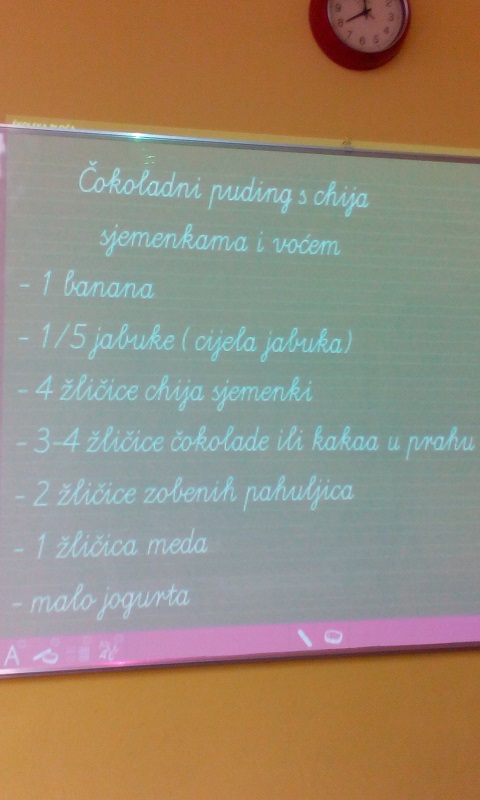 Čokoladni puding s chija
sjemenkama i voćem
- 1 banana
- 1/5 jabuke ( cijela jabuka)
- 4 žličice chija sjemenki
- 3-4 žličice čokolade ili kakaa u prahu
- 2 žličice zobenih pahuljica
- 1 žličica meda
- malo jogurta
A